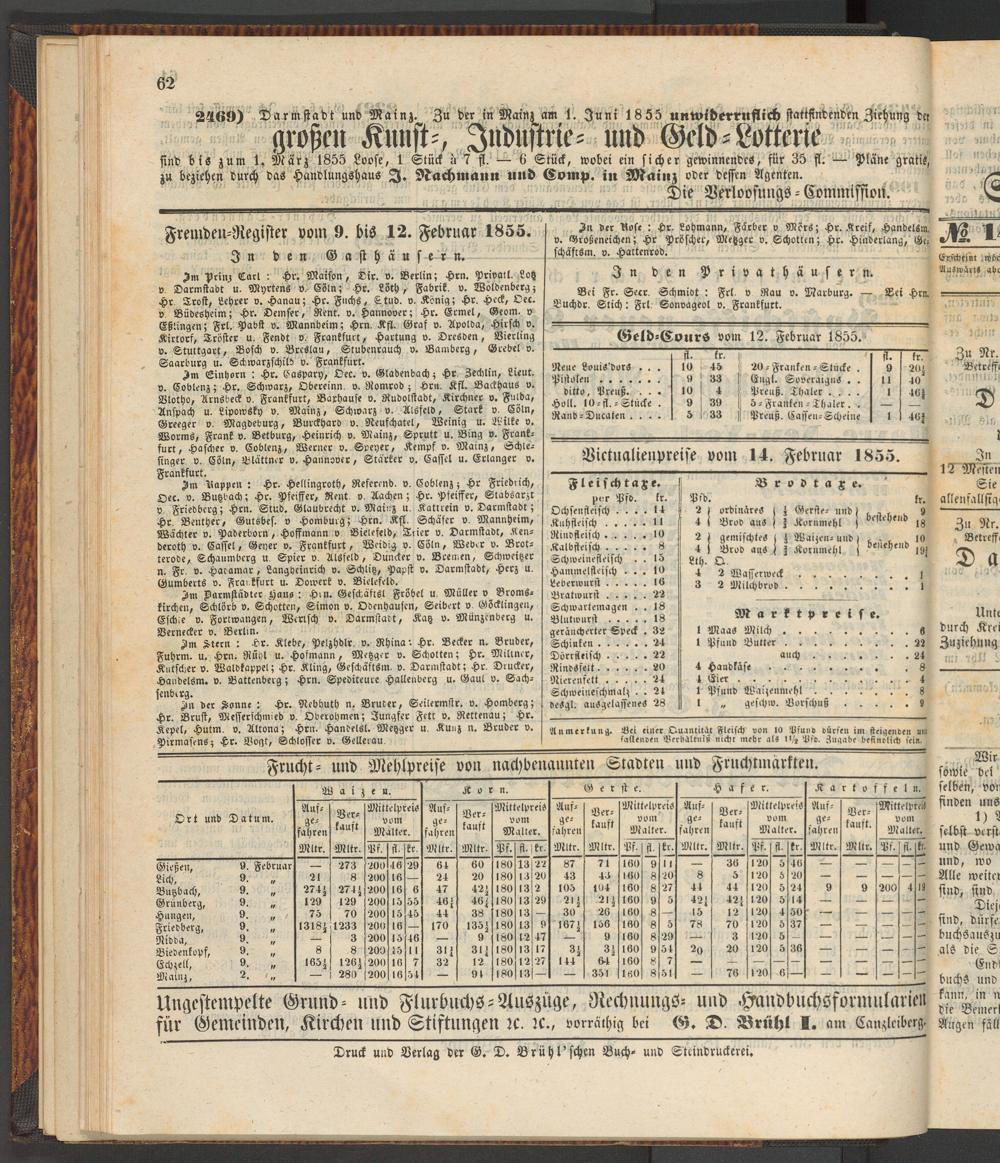 62
2469) Darmstadt und Mainz. Zu der in Mainz am 1. Juni 1855 unwiderruflich stattfindenden Ziehung der
großen Kunst-, Industrie- und Geld-Lotterie
sind bis zum 1. März 1855 Loose, 1 Stück à 7 fl. — 6 Stück, wobei ein sicher gewinnendes, für 35 fl. — Pläne gratis,
zu beziehen durch das Handlungshaus J. Nachmann und Comp. in Mainz oder dessen Agenten.
Die Verloosungs-Commission.
Fremden-Register vom 9. bis 12. Februar 1855.
In den Gasthäusern.
Im Prinz Carl: Hr. Maison, Dir. v. Berlin; Hrn. Privatl. Lotz
v. Darmstadt u. Myrtens v. Cöln; Hr. Löth, Fabrik. v. Woldenberg;
Hr. Trost, Lehrer v. Hanau; Hr. Fuchs, Stud. v. König; Hr. Heck, Oec.
v. Büdesheim; Hr. Demser, Rent. v. Hannover; Hr. Ermel, Geom. v.
Eßlingen; Frl. Pabst v. Mannheim; Hrn. Kfl. Graf v. Apolda, Hirsch v.
Kirtorf, Tröster u. Fendt v. Frankfurt, Hartung v. Dresden, Vierling
v. Stuttgart, Bosch v. Breslau, Stubenrauch v. Bamberg, Grebel v.
Saarburg u. Schwarzschild v. Frankfurt.
Im Einhorn: Hr. Caspary, Oec. v. Gladenbach; Hr. Zechlin, Lieut.
v. Coblenz; Hr. Schwarz, Obereinn. v. Romrod; Hrn. Kfl. Backhaus v.
Vlotho, Arnsbeck v. Frankfurt, Barhause v. Rudolstadt, Kirchner v. Fulda,
Anspach u. Lipowsky v. Mainz, Schwarz v. Alsfeld, Stark v. Cöln,
Greeger v. Magdeburg, Burckhard v. Neufchatel, Weinig u. Wilke v.
Worms, Frank v. Betburg, Heinrich v. Mainz, Sprutt u. Bing v. Frank-
furt, Hascher v. Coblenz, Werner v. Speyer, Kempf v. Mainz, Schle-
singer v. Cöln, Blättner v. Hannover, Stärker v. Cassel u. Erlanger v.
Frankfurt.
Im Rappen: Hr. Hellingroth, Referend. v. Coblenz; Hr Friedrich,
Oec. v. Butzbach; Hr. Pfeiffer, Rent. v. Aachen; Hr. Pfeiffer, Stabsarzt
v. Friedberg; Hrn. Stud. Glaubrecht v. Mainz u. Kattrein v. Darmstadt;
Hr. Benther, Gutsbes. v. Homburg; Hrn. Kfl. Schäfer v. Mannheim,
Wächter v. Paderborn, Hoffmann v. Bielefeld, Trier v. Darmstadt, Ken-
deroth v. Cassel, Geyer v. Frankfurt, Weidig v. Cöln, Weber v. Brot-
terode, Schaumberg u. Spier v. Alsfeld, Duncker v. Bremen, Schweitzer
n. Fr. v. Hadamar, Langheinrich v. Schlitz, Papst v. Darmstadt, Hertz u.
Gumberts v. Frankfurt u. Dowerk v. Bielefeld.
Im Darmstädter Haus: Hrn. Geschäftsl Fröbel u. Müller v Broms-
kirchen, Schlörb v. Schotten, Simon v. Odenhausen, Seibert v. Göcklingen,
Eschle v. Fortwangen, Wertsch v. Darmstadt, Katz v. Münzenberg u.
Vernecker v. Berlin.
Im Stern: Hr. Klebe, Pelzhdlr. v. Rhina; Hr. Becker n. Bruder,
Fuhrm. u. Hrn. Rühl u. Hofmann, Metzger v. Schotten; Hr. Miltner,
Kutscher v. Waldkappel; Hr. Kling, Geschäftsm. v. Darmstadt; Hr. Drucker,
Handelsm. v. Battenberg; Hrn. Spediteure Hallenberg u. Gaul v. Sach-
senberg.
In der Sonne: Hr. Rebhuth n. Bruder, Seilermstr. v. Homberg;
Hr. Brust, Messerschmied v. Oberohmen; Jungfer Fett v. Rettenau; Hr.
Kepel, Hutm. v. Altona; Hrn. Handelsl. Metzger u. Kunz n. Bruder v.
Pirmasens; Hr. Vogt, Schlosser v. Gellerau.
In der Rose: Hr. Lohmann, Färber v Mörs; Hr. Kreif, Handelsm.
v. Großeneichen; Hr Pröscher, Metzger v. Schotten; Hr. Hinderlang, Ge-
schäftsm. v. Hattenrod.
In den Privathäusern.
Bei Fr. Secr. Schmidt: Frl. v Rau v. Marburg. — Bei Hrn.
Buchdr. Stich: Frl Sonvageol v. Frankfurt.
Geld-Cours vom 12. Februar 1855.
fl. kr. fl. kr.
Neue Louisd'ors . . . 10 45 20-Franken-Stücke . 9 20½
Pistolen . . . . 9 33 Engl. Soveraigns . . 11 40
ditto, Preuß. . . . 10 4 Preuß. Thaler . . 1 46¾
Holl. 10-fl.-Stücke . 9 39 5-Franken-Thaler . . — —
Rand-Ducaten . . . . 5 33 Preuß. Cassen-Scheine 1 46¾
Victualienpreise vom 14. Februar 1855.
Fleischtaxe.
per Pfd. kr.
Ochsenfleisch . . . . . 14
Kuhfleisch . . . . . 11
Rindfleisch . . . . . 10
Kalbfleisch . . . . . 8
Schweinefleisch . . . 15
Hammelfleisch . . . . 10
Leberwurst . . . . . 16
Bratwurst . . . . . 22
Schwartemagen . . 18
Blutwurst . . . . . 18
geräucherter Speck . 32
Schinken . . . . . 24
Dörrfleisch . . . . . 22
Rindsfett . . . . . 20
Nierenfett . . . . . 24
Schweineschmalz . . 24
desgl. ausgelassenes 28
Brodtaxe.
Pfd. kr.
2 ordinäres ⅓ Gerste- und 9
4 Brod aus ⅔ Kornmehl bestehend 18
2 gemischtes Waizen- und 10
4 Brod aus Kornmehl bestehend 19½
Lth. Q.
4 2 Wasserweck . . . . . 1
3 2 Milchbrod . . . . . 1
Marktpreise.
1 Maas Milch . . . . . 6
1 Pfund Butter . . . . . 22
auch . . . 24
4 Handkäse . . . . . 8
4 Eier . . . . . 4
1 Pfund Waizenmehl . . . . . 8
1 „ geschw. Vorschuß . . . . . 9
Anmerkung. Bei einer Quantität Fleisch von 10 Pfund dürfen im steigenden und
fallenden Verhältniß nicht mehr als 1½ Pfd. Zugabe befindlich sein.
Frucht- und Mehlpreise von nachbenannten Städten und Fruchtmärkten.
Ort und Datum. Waizen. Korn. Gerste. Hafer. Kartoffeln.
Auf-gefahren Ver-kauft Mittelpreis vom Malter. Auf-gefahren Ver-kauft Mittelpreis vom Malter. Auf-gefahren Ver-kauft Mittelpreis vom Malter. Auf-gefahren Ver-kauft Mittelpreis vom Malter. Auf-gefahren Ver-kauft Mittelpreis vom Malter.
Mltr. Mltr. Pf. fl. kr. Mltr. Mltr. Pf. fl. kr. Mltr. Mltr. Pf. fl. kr. Mltr. Mltr. Pf. fl. kr. Mltr. Mltr. Pf. fl. kr.
Gießen, 9. Februar — 273 200 16 29 64 60 180 13 22 87 71 160 9 11 — 36 120 5 46 — — — — —
Lich, 9. „ 21 8 200 16 — 24 20 180 13 20 43 43 160 8 20 8 5 120 5 20 — — — — —
Butzbach, 9. „ 274½ 274½ 200 16 6 47 42½ 180 13 2 105 104 160 8 27 44 44 120 5 24 9 9 200 4 19
Grünberg, 9. „ 129 129 200 15 55 46¼ 46¼ 180 13 29 21½ 21½ 160 9 5 42½ 42½ 120 5 14 — — — — —
Hungen, 9. „ 75 70 200 15 45 44 38 180 13 — 30 26 160 8 — 15 12 120 4 50 — — — — —
Friedberg, 9. „ 1318½ 1233 200 16 — 170 135½ 180 13 9 167½ 156 160 8 5 78 70 120 5 37 — — — — —
Nidda, 9. „ — 3 200 15 46 — 9 180 12 47 — 9 160 8 29 — 3 120 5 — — — — — —
Biedenkopf, 9. „ 8 8 200 15 11 31¼ 31¼ 180 13 17 3½ 3½ 160 9 5 20 20 120 5 36 — — — — —
Echzell, 9. „ 165½ 126½ 200 16 7 32 12 180 12 27 144 64 160 8 7 — — — — — — — — — —
Mainz, 2. „ — 280 200 16 54 — 94 180 13 — — 351 160 8 51 — 76 120 6 — — — — — —
Ungestempelte Grund- und Flurbuchs-Auszüge, Rechnungs- und Handbuchsformularien
für Gemeinden, Kirchen und Stiftungen ꝛc. ꝛc., vorräthig bei G. D. Brühl I. am Canzleiberg.
Druck und Verlag der G. D. Brühl'schen Buch- und Steindruckerei.